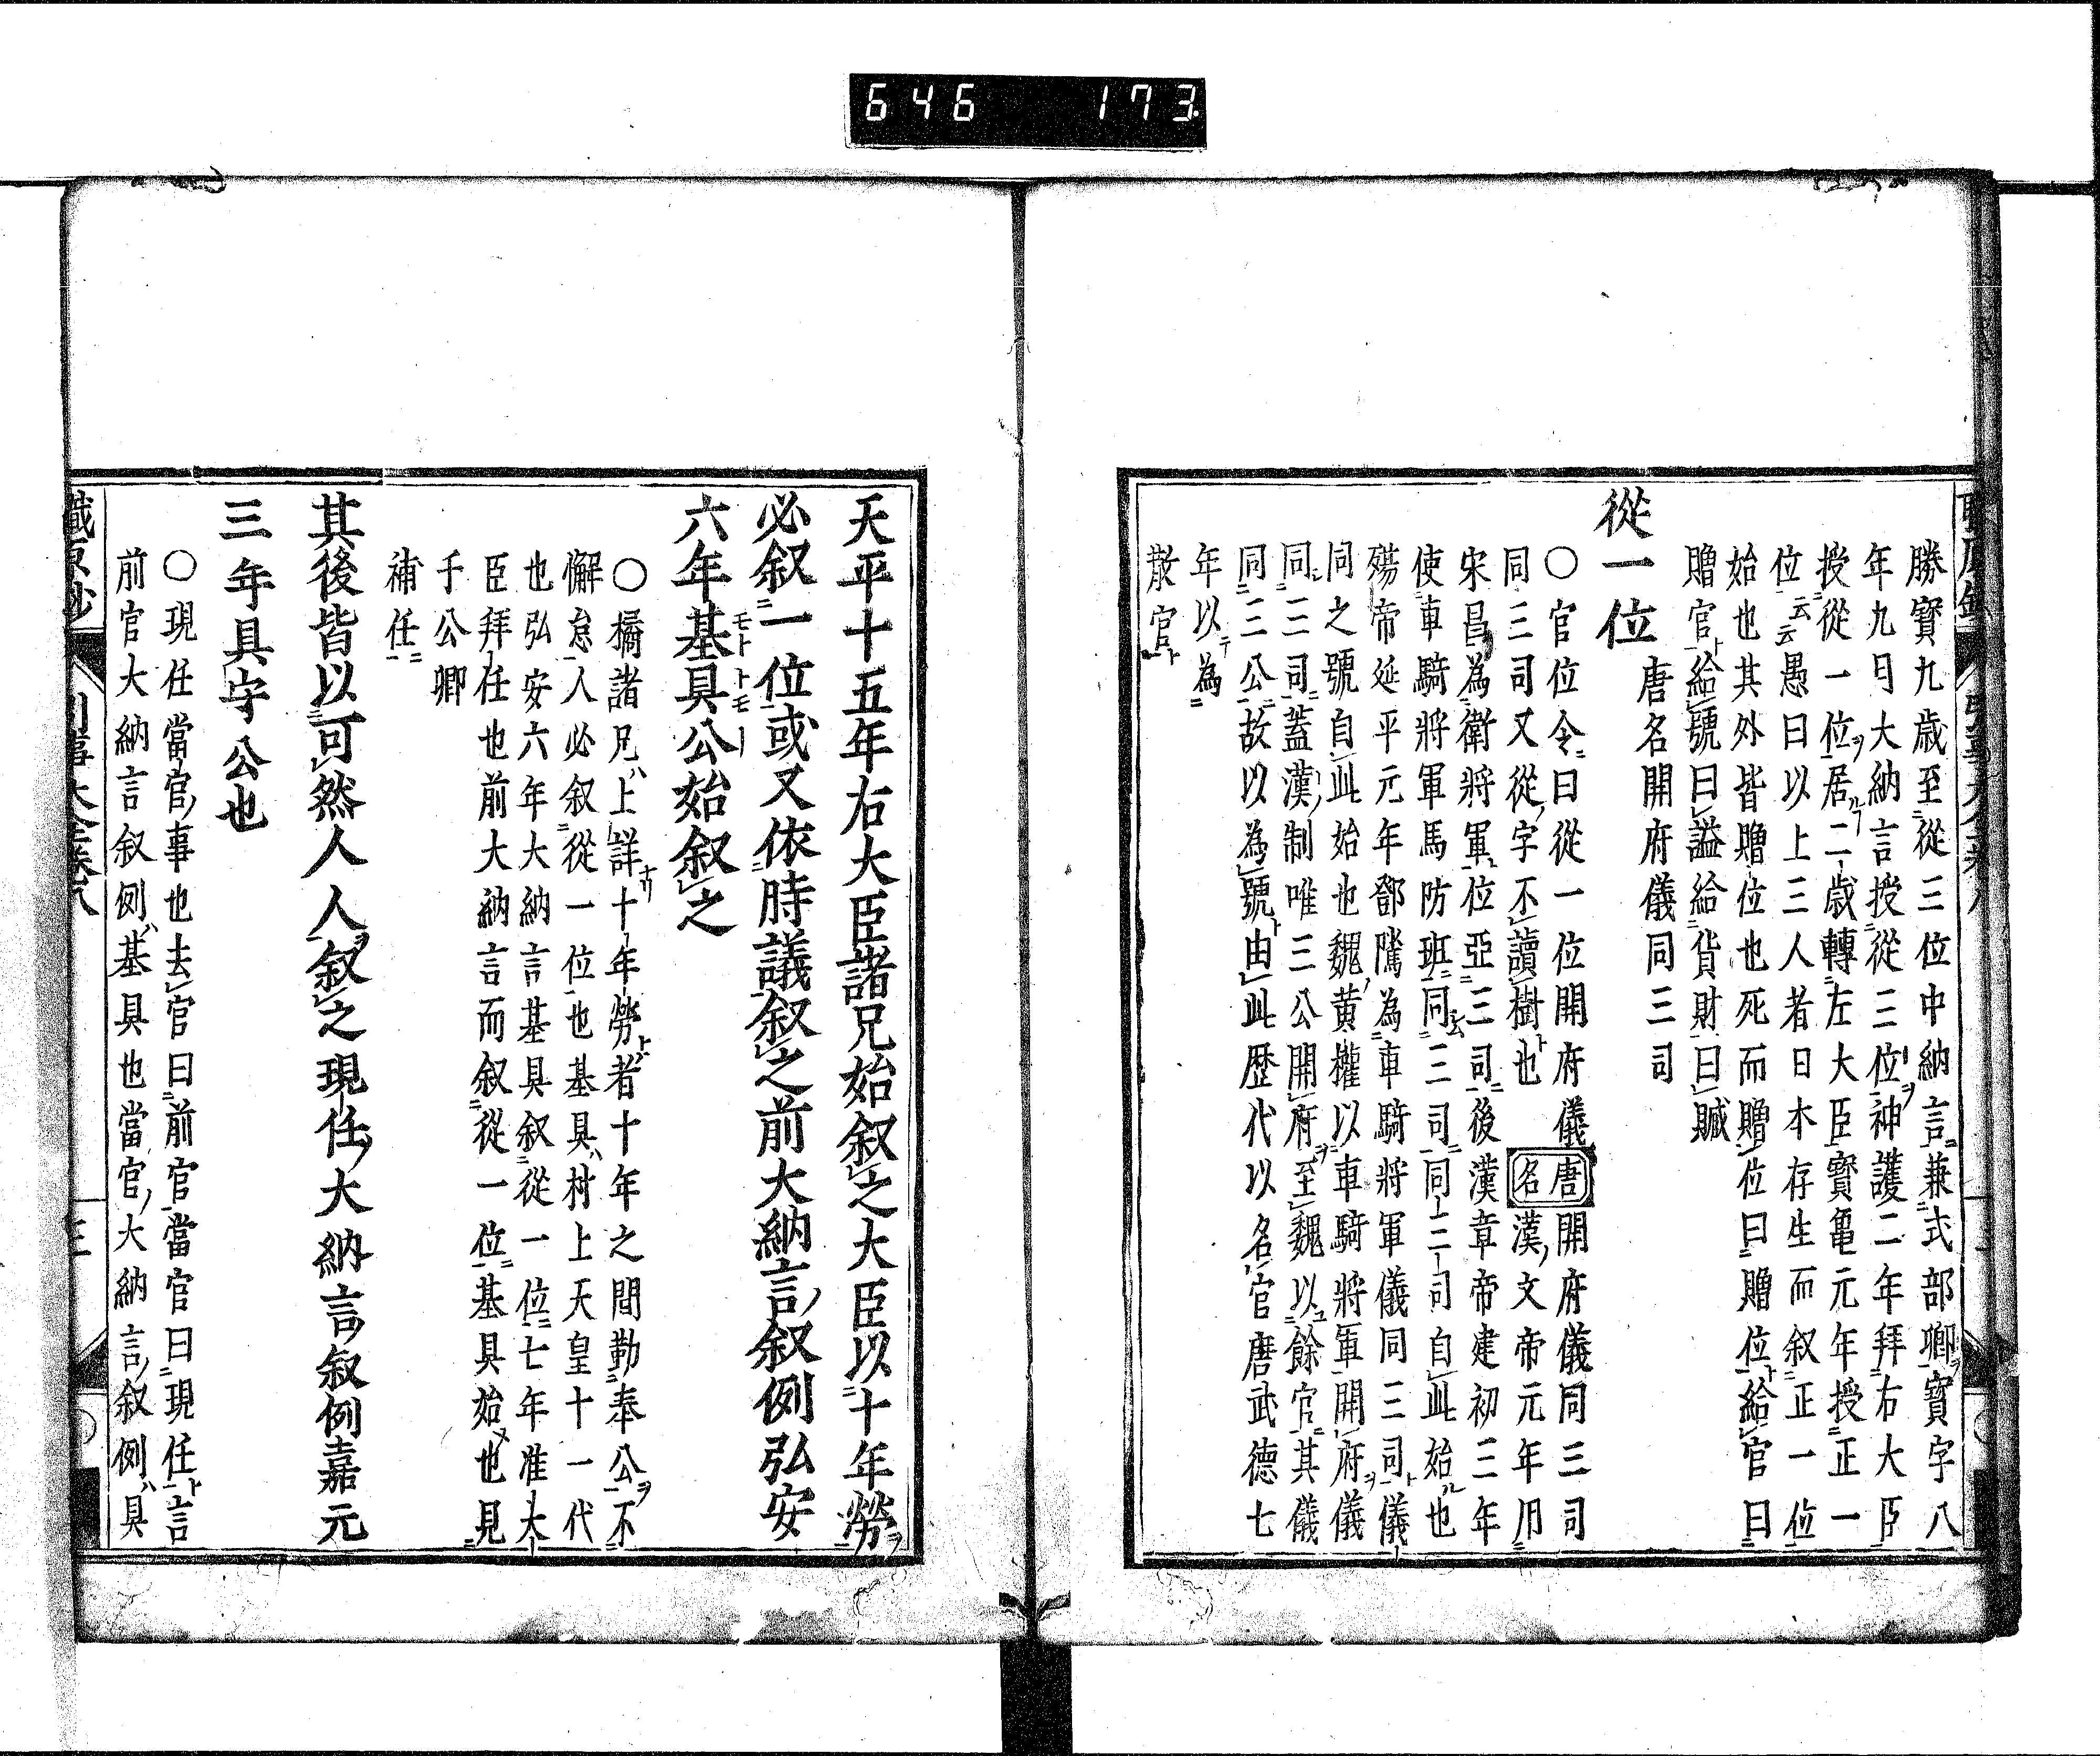 646 173
勝寶九歳至從三位中納言兼式部卿寶字八
年九月大納言授從三位神護二年拜右大臣
授從一位居二歳轉左大臣寶亀元年授正一
位云云愚曰以上三人者日本存生而叙正一位
始也其外皆贈位也死而贈位曰贈位給官曰
贈官給號曰謚給貨財曰贓
從一位 唐名開府儀同三司
○官位令曰從一位開府儀同三司又從字不讀樹也
唐名 開府儀同三司漢文帝元年用
宋昌為衛將軍位亞三司後漢章帝建初三年
使車騎將軍馬防班同三司同三司自此始也
殤帝延平元年鄧隲為車騎將軍儀同三司儀
同之號自此始也魏黄權以車騎將軍開府儀
同三司蓋漢制唯三公開府至魏以餘官其儀
同三公故以為號由此歴代以名官唐武德七
年以為
散官
天平十五年右大臣諸兄始叙之大臣以十年勞
必叙一位或又依時議叙之前大納言叙例弘安
六年基具公始叙之
○橘諸兄上詳十年勞者十年之間勤奉公不
懈怠人必叙從一位也基具村上天皇十一代
也弘安六年大納言基具叙從一位七年准大
臣拜任也前大納言而叙從一位基具始也見
于公卿
補任
其後皆以可然人人叙之現任大納言叙例嘉元
三年具守公也
○現任當官事也去官曰前官當官曰現任言
前官大納言叙例基具也當官大納言叙例具